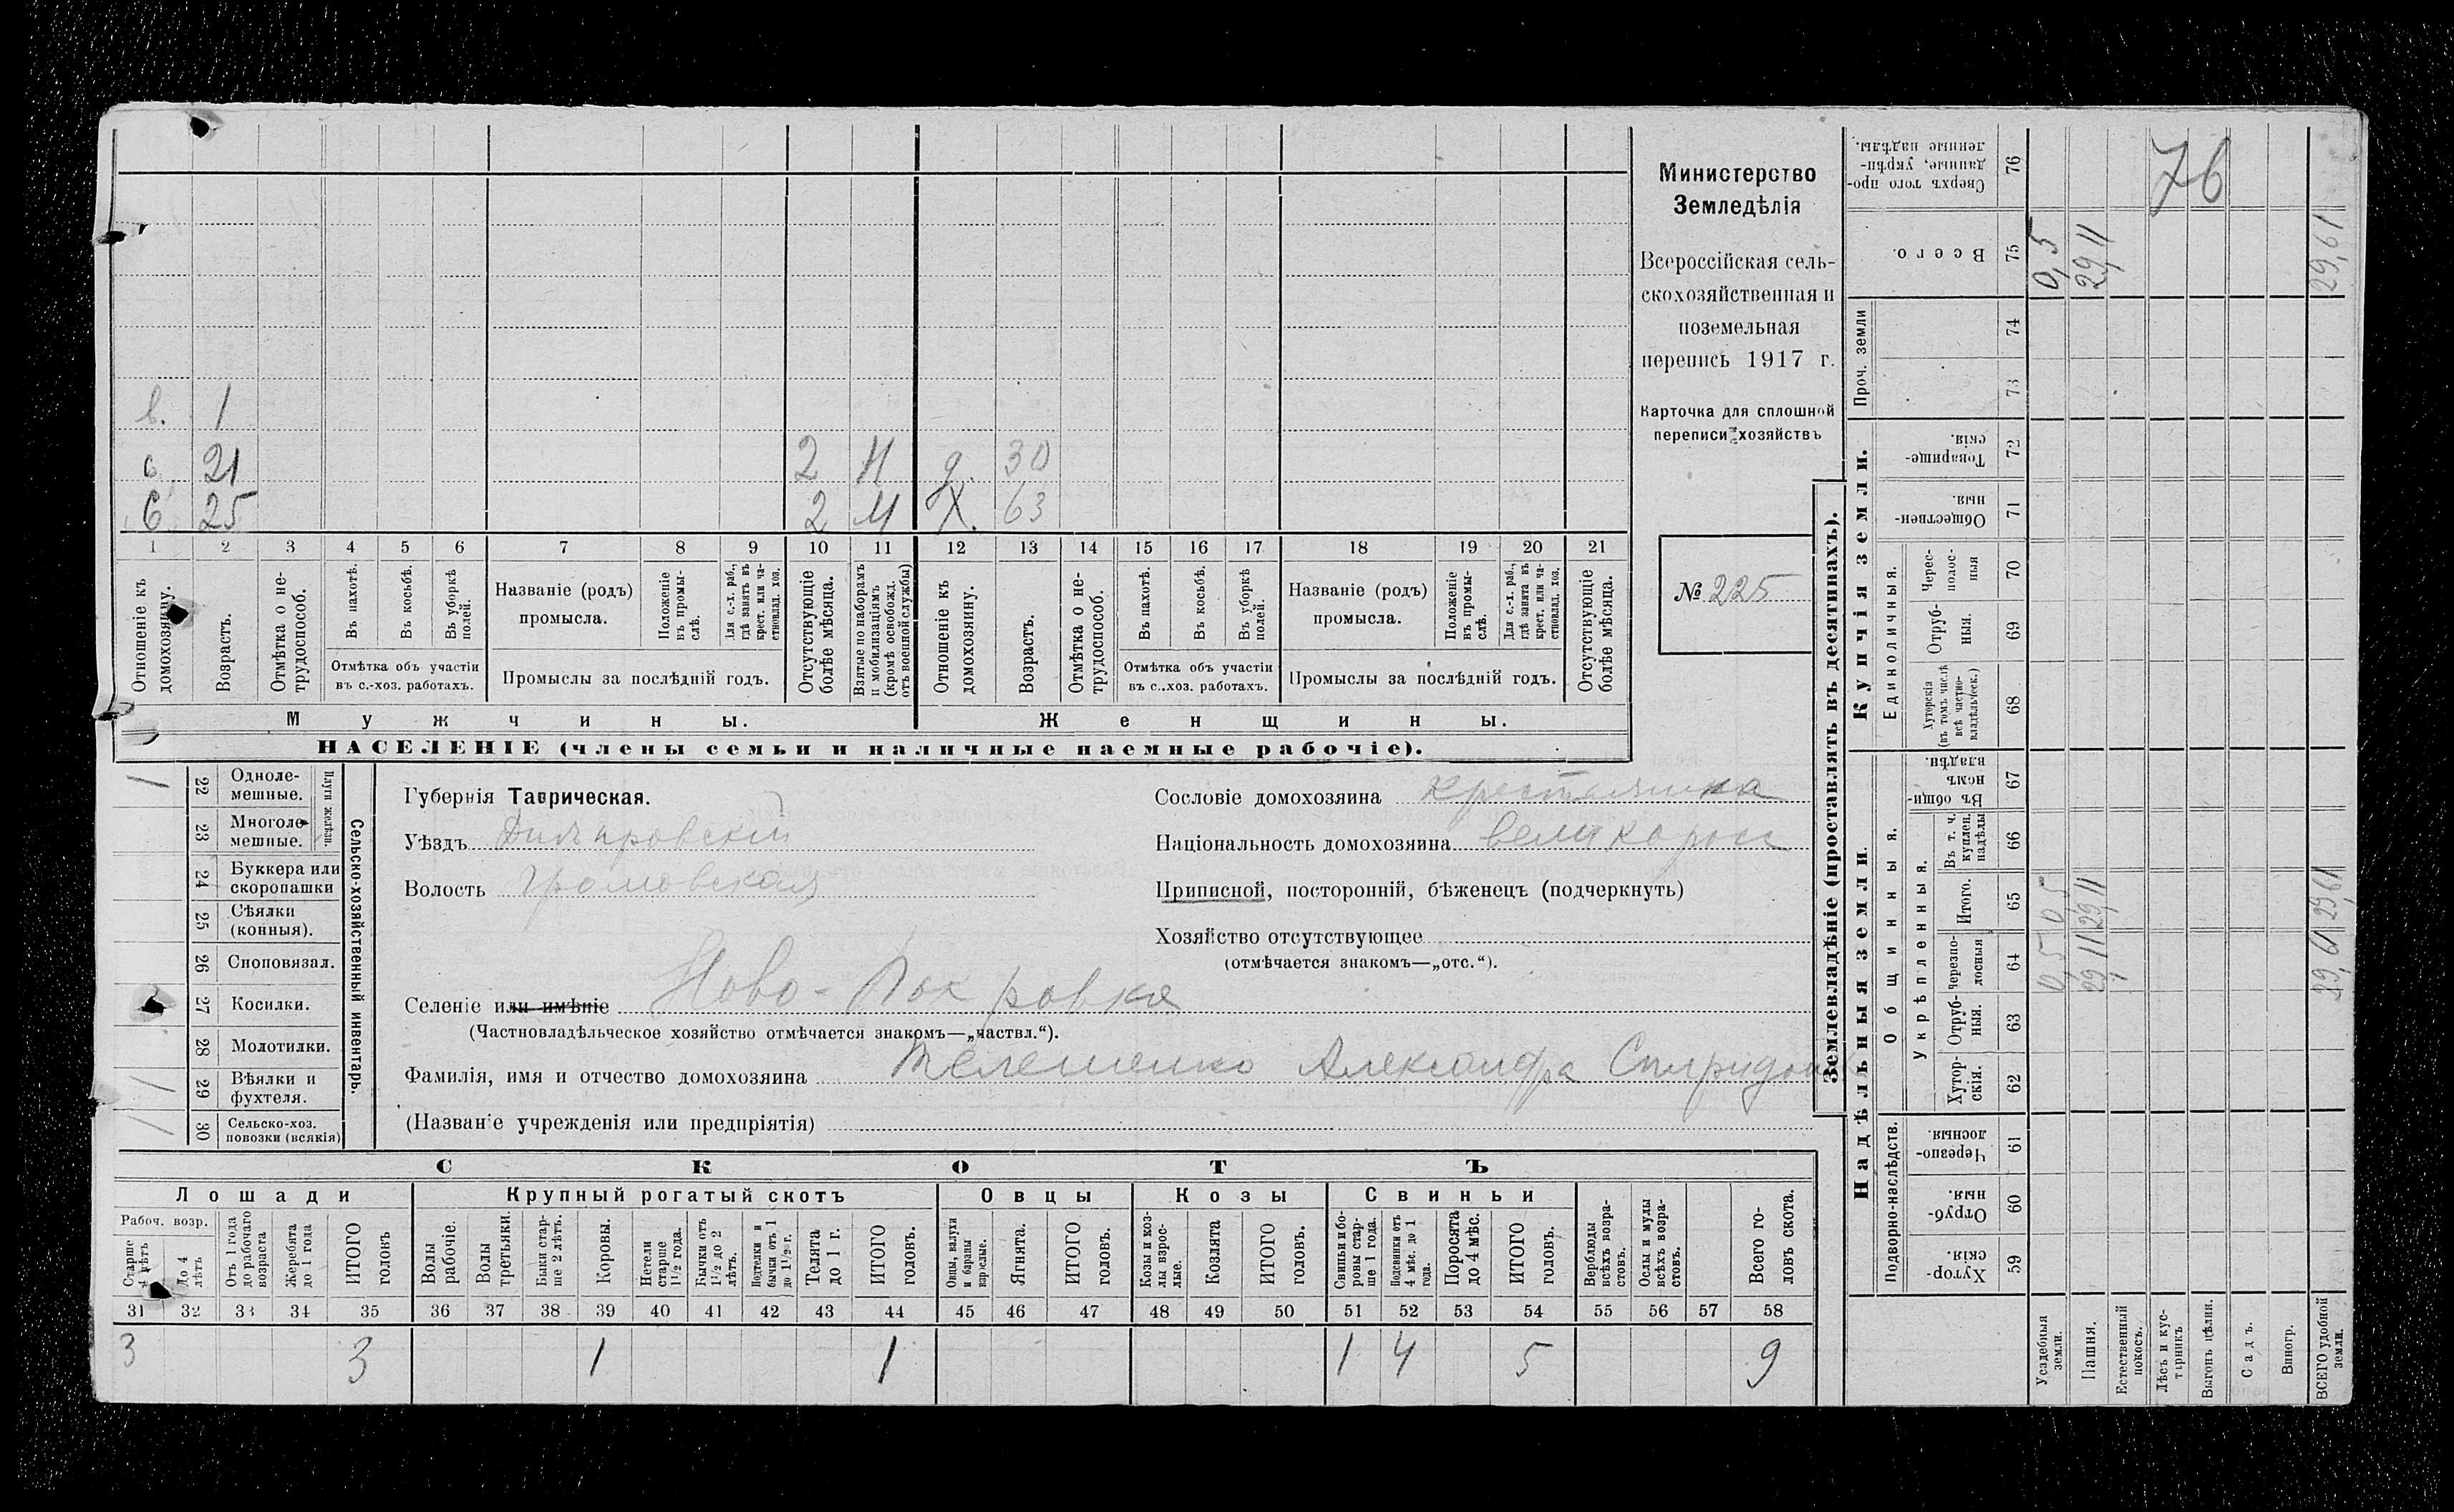 Министерство
Земледѣлія
Всероссійская сель-
скохозяйственная и
поземельная
перепись 1917 г.
Карточка для сплошной
переписи хозяйствъ
№ 225
в. 1
с. 21 2 М д. 30
С. 25 2 М Х. 63
1 2 3 4 5 6 7 8 9 10 11 12 13 14 15 16 17 18 19 20 21
Отношеніе къ домохозяину.
Возрастъ.
Отмѣтка о не-трудоспособ.
Въ пахотѣ.
Въ косьбѣ.
Въ уборкѣ полей.
Отмѣтка объ участіи
въ с.-хоз. работахъ.
Названіе (родъ)
промысла.
Положеніе въ промы-слѣ.
Для с.-х. раб., гдѣ занятъ въ крест. или ча-стновлад. хоз.
Промыслы за послѣдній годъ.
Отсутствующіе болѣе мѣсяца.
Взятые по наборамъ и мобилизаціямъ (кромѣ освобожд. отъ военной службы)
Отношеніе къ домохозяину.
Возрастъ.
Отмѣтка о не-трудоспособ.
Въ пахотѣ.
Въ косьбѣ.
Въ уборкѣ полей.
Отмѣтка объ участіи
въ с.-хоз. работахъ.
Названіе (родъ)
промысла.
Положеніе въ промы-слѣ.
Для с.-х. раб., гдѣ занятъ въ крест. или ча-стновлад. хоз.
Промыслы за послѣдній годъ.
Отсутствующіе болѣе мѣсяца.
Мужчины.
Женщины.
НАСЕЛЕНІЕ (члены семьи и наличные наемные рабочіе).
Сельско-хозяйственный инвентарь.
Плуги желѣзн.
1 22 Одноле-мешные.
23 Многоле-мешные.
24 Буккера или скоропашки
25 Сѣялки (конныя).
26 Сноповязал.
27 Косилки.
28 Молотилки.
1 29 Вѣялки и фухтеля.
1 30 Сельско-хоз. повозки (всякія)
Губернія Таврическая.
Уѣздъ Днѣпровскій
Волость Громовская
Сословіе домохозяина крестьянка
Національность домохозяина великоросс
Приписной, посторонній, бѣженецъ (подчеркнуть)
Хозяйство отсутствующее
(отмѣчается знакомъ—„отс.“).
Селеніе или имѣніе Ново-Покровка
(Частновладѣльческое хозяйство отмѣчается знакомъ—„частвл.“).
Фамилія, имя и отчество домохозяина Телешенко Александра Спиридон
(Названіе учрежденія или предпріятія)
СКОТЪ
Лошади
Крупный рогатый скотъ
Овцы
Козы
Свиньи
Рабоч. возр.
Старше 4 лѣтъ
До 4 лѣтъ
Отъ 1 года до рабочаго возраста
Жеребята до 1 года
ИТОГО головъ
Волы рабочіе.
Волы третьяки.
Быки стар-ше 2 лѣтъ.
Коровы.
Нетели старше 1½ года.
Бычки отъ 1½ до 2 лѣтъ.
Подтелки и бычки отъ 1 до 1½ г.
Телята до 1 г.
ИТОГО головъ.
Овцы, валухи и бараны взрослые.
Ягнята.
ИТОГО головъ.
Козы и коз-лы взрос-лые.
Козлята
ИТОГО головъ.
Свиньи и бо-ровы стар-ше 1 года.
Подсвинки отъ 4 мѣс. до 1 года.
Поросята до 4 мѣс.
ИТОГО головъ.
Верблюды всѣхъ возра-стовъ.
Ослы и мулы всѣхъ возра-стовъ.
Всего го-ловъ скота.
31 32 33 34 35 36 37 38 39 40 41 42 43 44 45 46 47 48 49 50 51 52 53 54 55 56 57 58
3 3 1 1 1 4 5 9
Землевладѣніе (проставлять въ десятинахъ).
Надѣльныя земли.
Купчія земли.
Проч. земли
Подворно-наслѣдств.
Общинныя.
Укрѣпленныя.
Единоличныя.
59 Хутор-скія.
60 Отруб-ныя.
61 Черезпо-лосныя.
62 Хутор-скія.
63 Отруб-ныя.
64 Черезпо-лосныя
65 Итого.
66 Въ т. ч. куплен. надѣлы
67 Въ общин-номъ владѣн.
68 Хуторскія (въ томъ числѣ всѣ частно-владѣльческ.)
69 Отруб-ныя.
70 Черес-полос-ныя
71 Обществен-ныя.
72 Товарище-скія.
73
74
75 Всего.
76 Сверхъ того про-данные, укрѣп-ленные надѣлы.
Усадебныя земли. 0,5 0,5 0,5
Пашня. 29,11 29,11 29,11
Естественный покосъ.
Лѣсъ и кус-тарникъ.
Выгонъ цѣлин.
Садъ.
Виногр.
ВСЕГО удобной земли. 29,61 29,61 29,61
76